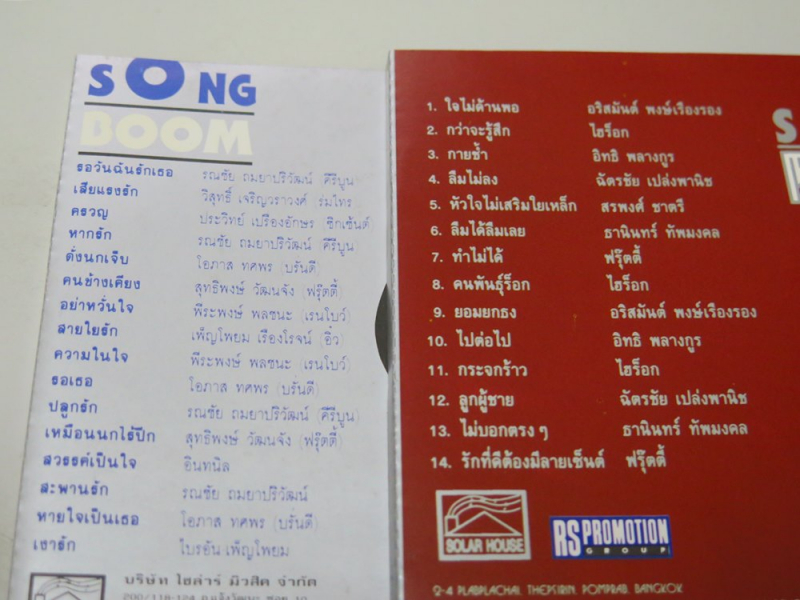 SONG
BOOM
รอวันฉันรักเธอ รณชัย ถมยาปริวัฒน์ (คีรีบูน)
เสียแรงรัก วิสุทธิ์ เจริญวราวงศ์ (ร่มไทร)
ครวญ ประวิทย์ เปรื่องอักษร (ซิกเซ้นต์)
หากรัก รณชัย ถมยาปริวัฒน์ (คีรีบูน)
ดั่งนกเจ็บ โอภาส ทศพร (บรั่นดี)
คนข้างเคียง สุทธิพงษ์ วัฒนจัง (ฟรุ๊ตตี้)
อย่าหวั่นใจ พีระพงษ์ พลชนะ (เรนโบว์)
สายใยรัก เพ็ญโพยม เรืองโรจน์ (อิ๋ว)
ความในใจ พีระพงษ์ พลชนะ (เรนโบว์)
รอเธอ โอภาส ทศพร (บรั่นดี)
ปลูกรัก รณชัย ถมยาปริวัฒน์ (คีรีบูน)
เหมือนนกไร้ปีก สุทธิพงษ์ วัฒนจัง (ฟรุ๊ตตี้)
สวรรค์เป็นใจ อินทนิล
สะพานรัก รณชัย ถมยาปริวัฒน์
หายใจเป็นเธอ โอภาส ทศพร (บรั่นดี)
เงารัก ไบรอัน เพ็ญโพยม
บริษัท ไฮคำร์ มิวสิค จำกัด
1. ใจไม่ด้านพอ อริสมันต์ พงษ์เรืองรอง
2. กว่าจะรู้สึก ไฮร็อก
3. กายช้ำ อิทธิ พลางกูร
4. ลืมไม่ลง ฉัตรชัย เปล่งพานิช
5. หัวใจไม่เสริมใยเหล็ก สรพงศ์ ชาตรี
6. ลืมได้ลืมเลย ธานินทร์ ทัพมงคล
7. ทำไม่ได้ ฟรุ๊ตตี้
8. คนพันธุ์ร็อก ไฮร็อก
9. ยอมยกธง อริสมันต์ พงษ์เรืองรอง
10. ไปต่อไป อิทธิ พลางกูร
11. กระจกร้าว ไฮร็อก
12. ลูกผู้ชาย ฉัตรชัย เปล่งพานิช
13. ไม่บอกตรง ๆ ธานินทร์ ทัพมงคล
14. รักที่ดีต้องมีลายเซ็นต์ ฟรุ๊ตตี้
SOLAR HOUSE
RS PROMOTION
GROUP
2-4 PLABPLACHAI, THEPSIRIN, POMPRAB, BANGKOK